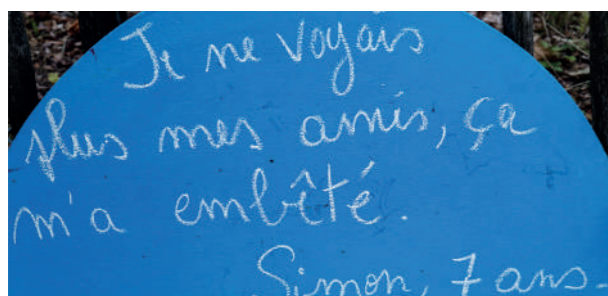 Je ne voyais
plus mes amis, ça
m'a embêté.
Simon, 7 ans.